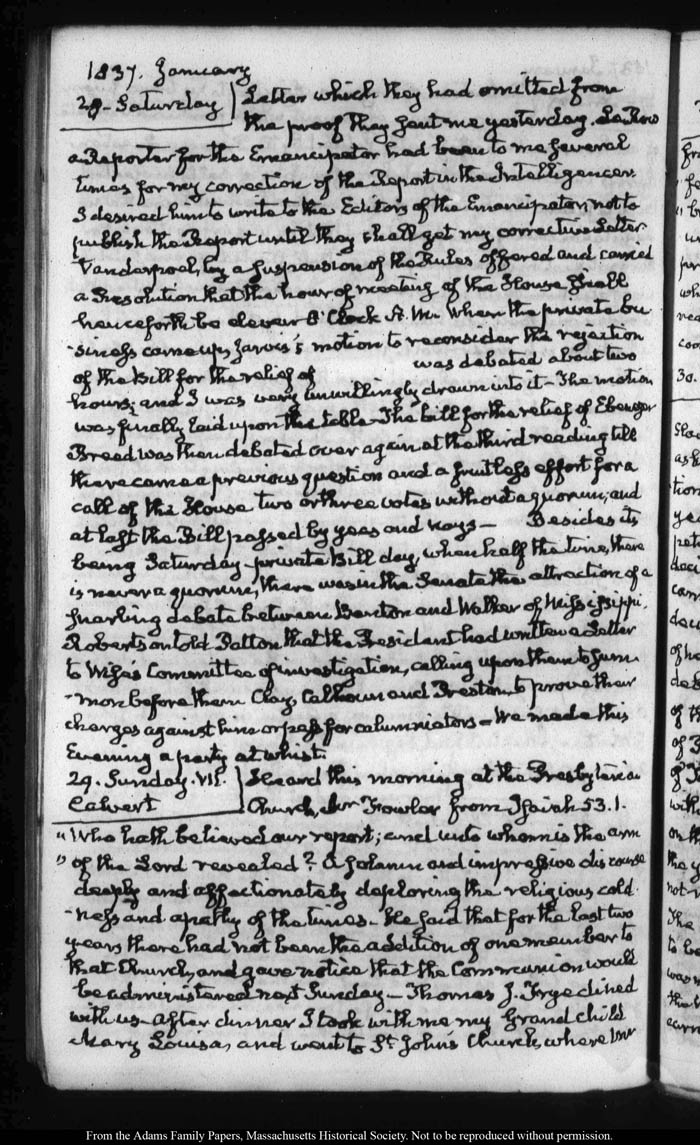 1837. January
28 - Saturday } Letter which they had omitted from
the proof they sent me yesterday.
a Reporter for the Emancipator had been to me several
times for my correction of the Report in the Intelligencer.
I desired him to write to the Editors of the Emancipator, not to
publish the Report until they shall get my corrective Letter
Vanderpoel, by a suspension of the Rules offered and carried
a Resolution that the hour of meeting of the House shall
henceforth be eleven O'Clock A. M. When the private bu
-siness came up, Jarvis's motion to reconsider the rejection
of the Bill for the relief of was debated about two
hours; and I was very unwillingly drawn into it - The motion
was finally laid upon the table - The bill for the relief of Ebenezer
Breed was then debated over again at the third reading till
there came a previous question and a fruitless effort for a
call of the House two or three votes without a quorum; and
at last the Bill passed by yeas and nays - Besides its
being Saturday - private Bill day, when half the time, there
is never a quorum, there was in the Senate the attraction of a
snarling debate between and Walker of Mississippi.
Robertson told Patton that the President had written a Letter
to Wise's Committee of investigation, calling upon them to sum
-mon before them Clay, Calhoun and Preston, to prove their
charges against him or pass for calumniators - We made this
Evening a party at whist.
29. Sunday. VII. } Heard this morning at the Presbyterian
Calvert Church, Mr Fowler from Isaiah 53.1.
"Who hath believed our report; and unto whom is the arm
" of the Lord revealed? A solemn and impressive discourse
deeply and affectionately deploring the religious cold
-ness and apathy of the times - He said that for the last two
years there had not been the addition of one member to
that Church, and gave notice that the Communion would
be administered next Sunday - Thomas J. Frye dined
with us - after dinner I took with me my Grand child
Mary Louisa, and went to St. John's Church, where Mr
From the Adams Family Papers, Massachusetts Historical Society. Not to be reproduced without permission.